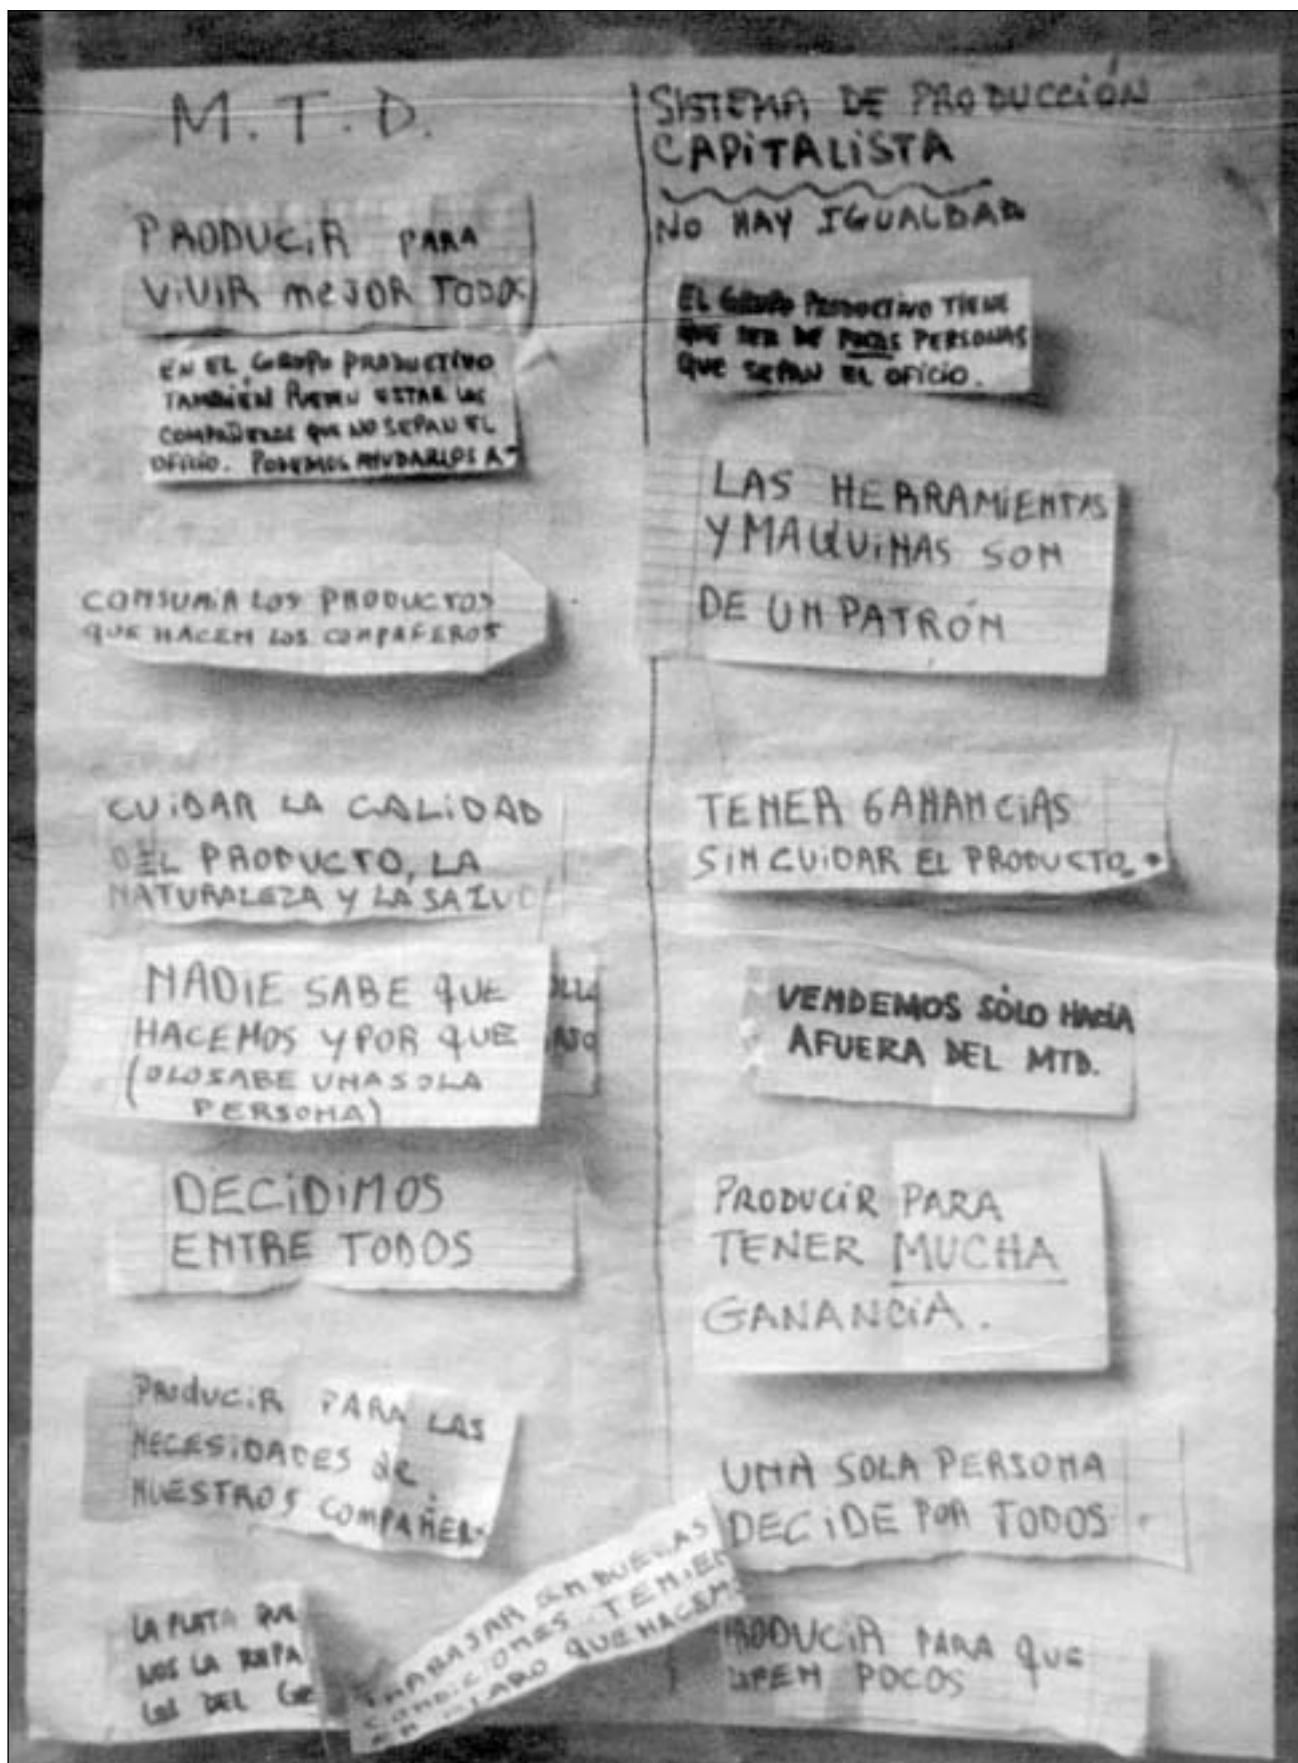 M.T.D.
PRODUCIR PARA
VIVIR MEJOR TODOS
EN EL GRUPO PRODUCTIVO
TAMBIÉN PUEDEN ESTAR LOS
COMPAÑEROS QUE NO SEPAN EL
OFICIO. PODEMOS AYUDARLOS A
CONSUMIR LOS PRODUCTOS
QUE HACEN LOS COMPAÑEROS
CUIDAR LA CALIDAD
DEL PRODUCTO, LA
NATURALEZA Y LA SALUD
NADIE SABE QUE
HACEMOS Y POR QUE
(O LO SABE UNA SOLA
PERSONA)
DECIDIMOS
ENTRE TODOS
PRODUCIR PARA LAS
NECESIDADES de
NUESTROS COMPAÑER
LA PLATA QUE
NOS LA
LOS DEL
TRABAJAR EN BUENAS
CONDICIONES. TENIE
EN CLARO QUE HACEM
SISTEMA DE PRODUCCIÓN
CAPITALISTA
NO HAY IGUALDAD
EL GRUPO PRODUCTIVO TIENE
QUE SER DE POCAS PERSONAS
QUE SEPAN EL OFICIO.
LAS HERRAMIENTAS
Y MAQUINAS SON
DE UN PATRÓN
TENER GANANCIAS
SIN CUIDAR EL PRODUCTO.
VENDEMOS SÓLO HACIA
AFUERA DEL MTD.
PRODUCIR PARA
TENER MUCHA
GANANCIA.
UNA SOLA PERSONA
DECIDE POR TODOS
PRODUCIR PARA QUE
POCOS